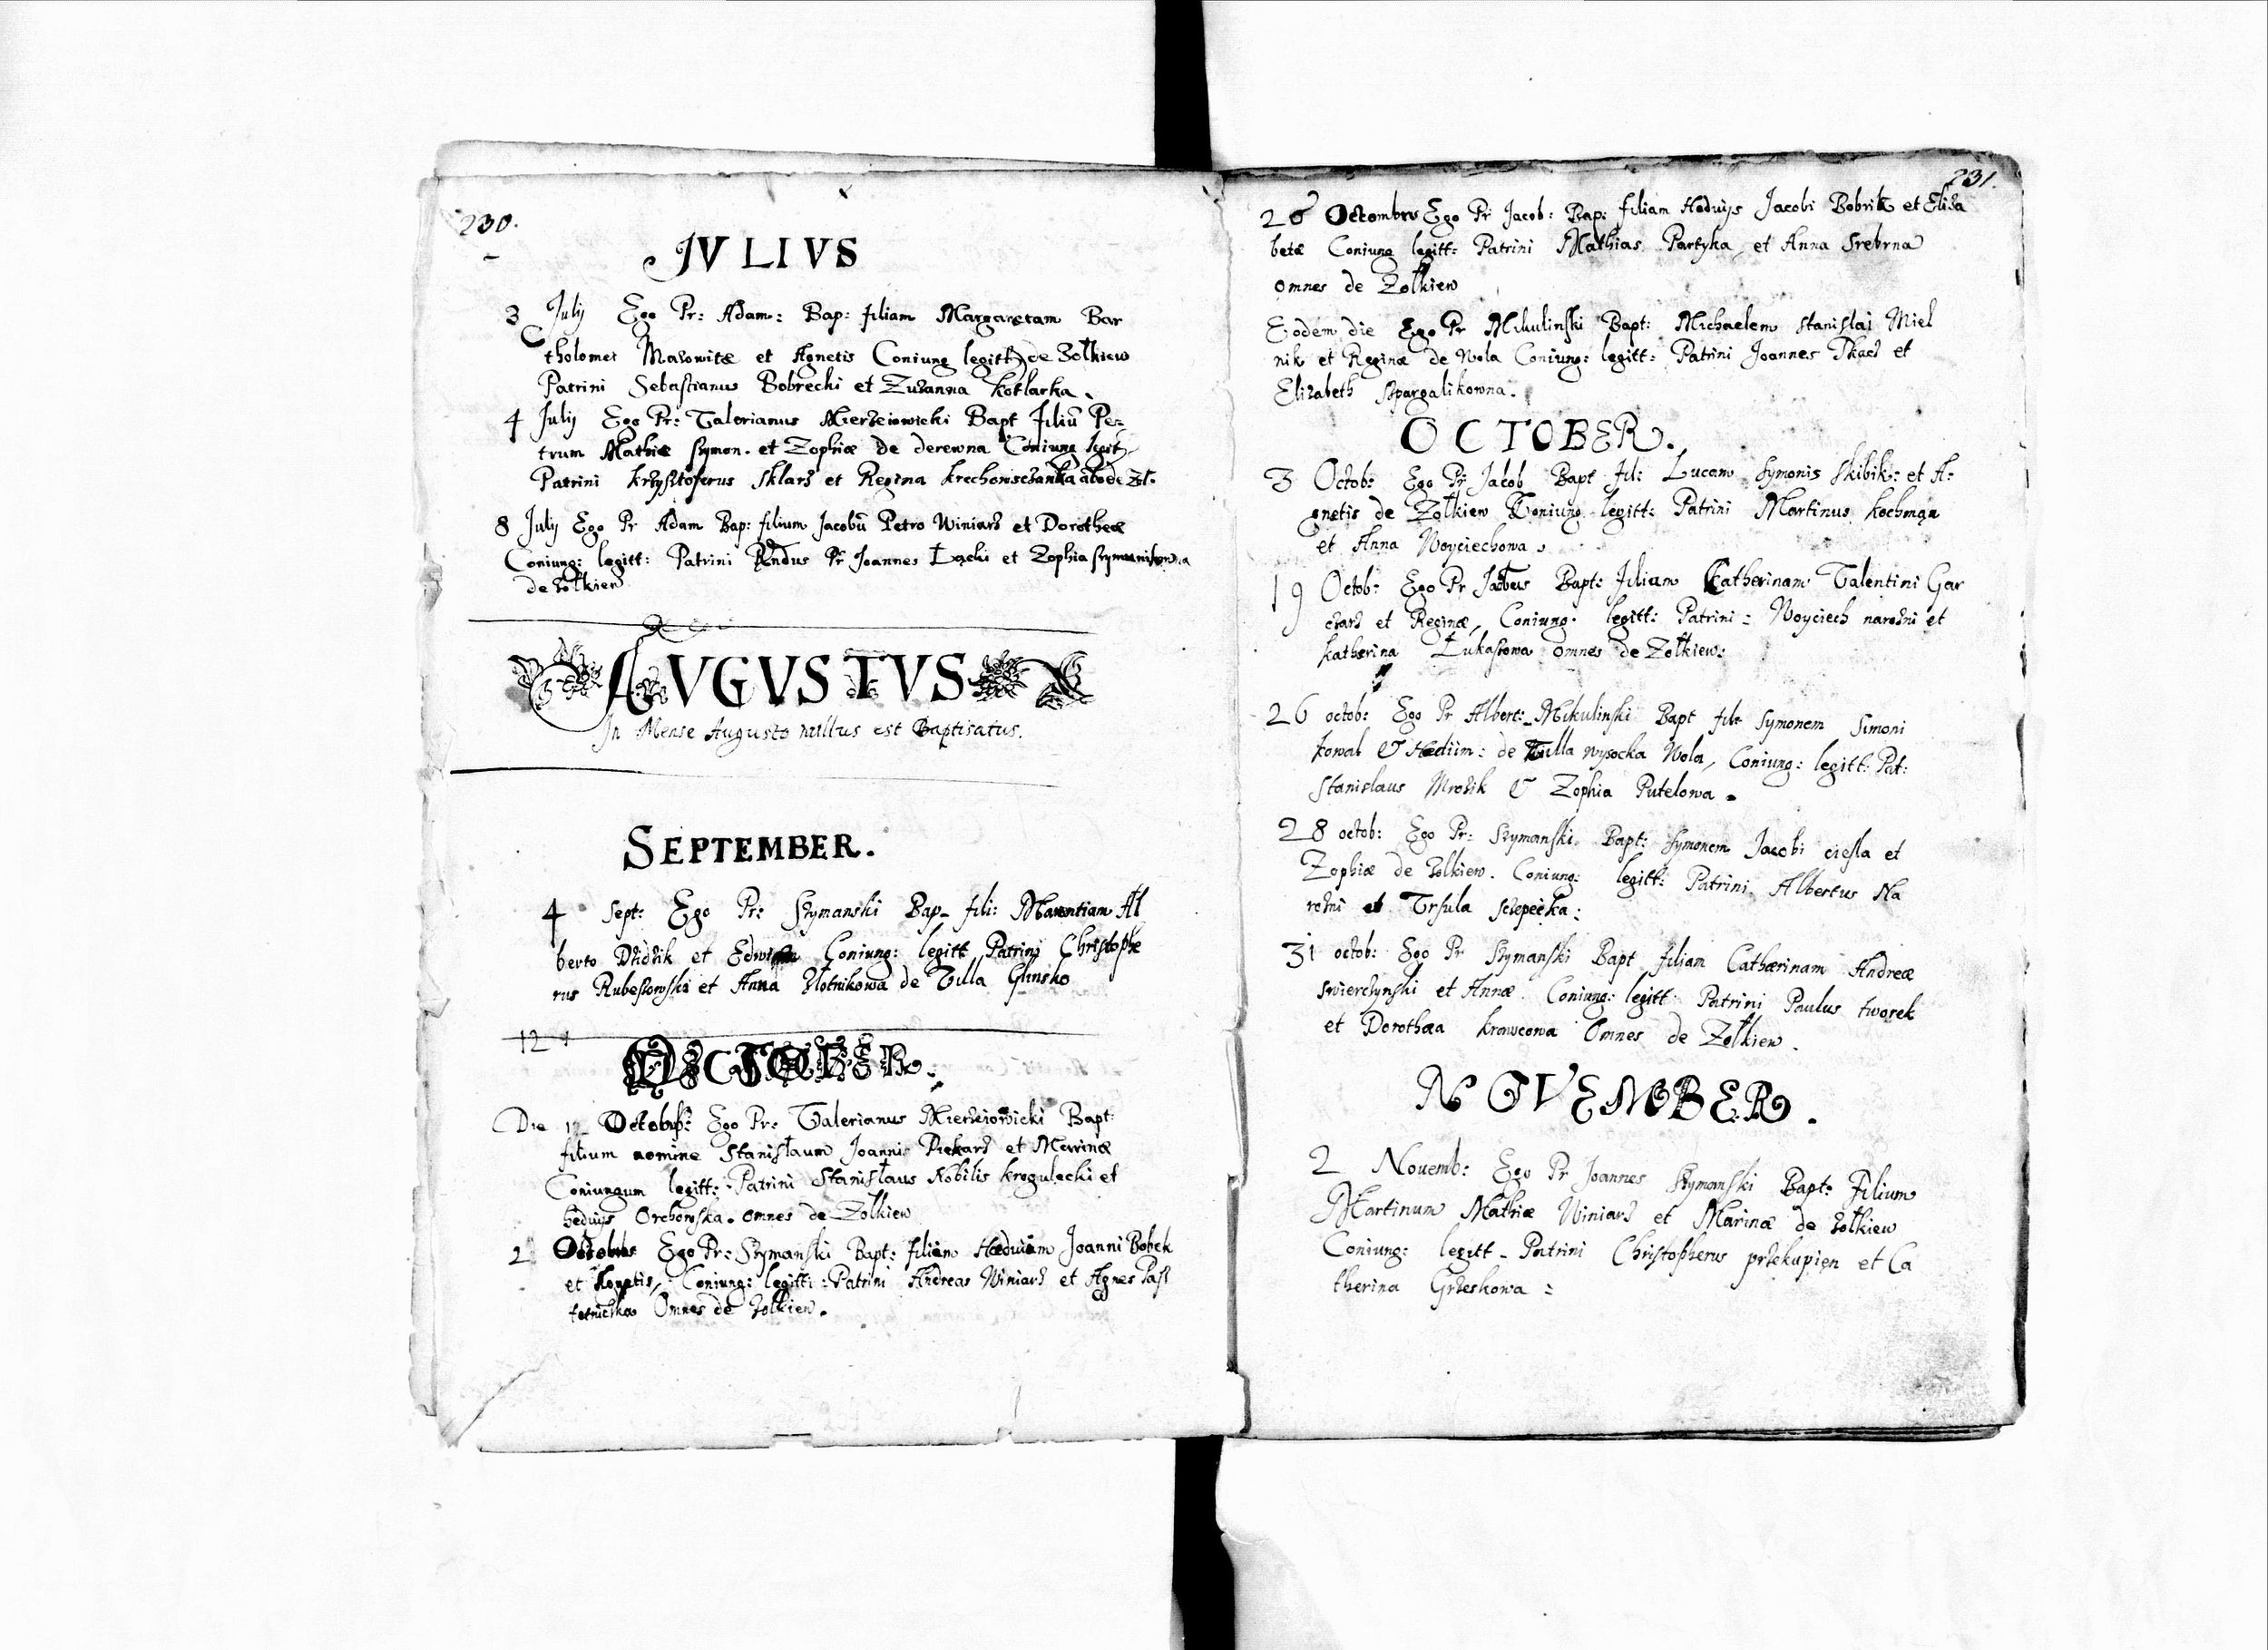 230.
JVLIVS
3 July Ego Pr: Adam: Bap: filiam Margaretam Bar
tholomei et Agnetis Coniung legitt: de Zolkiew
Patrini Sebastianus Bobrecki et Zuzanna kotlarka.
4 July Ego Pr: Valerianus Mierzeiowicki Bapt filiũ Pe-
trum Mathiæ Szymon. et Zophiæ de derewna Coniung legit
Patrini krzysztoferus Sklarz et Regina
8 July Ego Pr Adam Bap: filium Jacobũ Petro Winiarz et Dorotheæ
Coniung: legitt: Patrini Rndus Pr Joannes Łącki et Zophia
de Zolkiew
AVGVSTVS
In Mense Augusto nullus est Baptisatus.
SEPTEMBER.
4 Sept: Ego Pr: Szymanski Bap- fili: Al
berto et Coniung: legitt Patrini Christophe
rus Rubeszowski et Anna Złotnikowa de Villa Glinsko
12
OCTOBER.
Die 12 Octobr: Ego Pr: Valerianus Mierzeiowicki Bapt:
filium nomine Stanisłaum Joannis Piekarz et Marinæ
Coniungum legitt: Patrini Stanisłaus Nobilis krogulecki et
heduijs Orchowska. omnes de Zolkiew
2 Octobris Ego Pr: Szymanski Bapt: filiam Hæduiam Joanni Bobek
et Agnetis, Coniung: legitt: Patrini Andreas Winiarz et Agnes Past
Omnes de Zolkiew.
231.
26 Octombris Ego Pr Jacob: Bap: filiam Heduijs Jacobi et Eliza
betæ Coniung legitt: Patrini Mathias Partyka, et Anna Srebrna
omnes de Zołkiew
Eodem die Ego Pr Mikulinski Bapt: Michaelem Stanislai Miel
nik et Reginæ de Wola Coniung: legitt: Patrini Joannes Tkacz et
Elizabeth Szpargalikowna.
OCTOBER.
3 Octob: Ego Pr Jacob Bapt fil: Lucam Symonis Skibik: et A-
gnetis de Zołkiew Coniung legitt: Patrini Martinus kochman
et Anna Woyciechowa.
19 Octob: Ego Pr Jacobus Bapt: filiam Catherinam Valentini Gar
czarz et Reginæ, Coniung: legitt: Patrini: Woyciech narozni et
katherina Łukaszowa omnes de Zołkiew:
26 octob: Ego Pr Albert: Mikulinski Bapt fil: Symonem Simoni
kowal & Hæduim: de Villa wysocka Wola, Coniung: legitt: Pat:
Stanislaus Mrozik & Zophia Putelowa.
28 octob: Ego Pr: Szymanski Bapt: Symonem Jacobi ciesla et
Zophiæ de Zolkiew. Coniung: legitt: Patrini Albertus Na
rozni et Vrsula
31 octob: Ego Pr Szymanski Bapt filiam Catharinam Andreæ
Swierczynski et Annæ. Coniung: legitt: Patrini Paulus tworek
et Dorothæa krawcowa Omnes de Zołkiew.
NOVEMBER.
2 Nouemb: Ego Pr Joannes Szymanski Bapt: Filium
Martinum Mathiæ Winiarz et Marinæ de Zolkiew
Coniung: legitt- Patrini Christopherus przekupien et Ca
therina Grzeskowa: